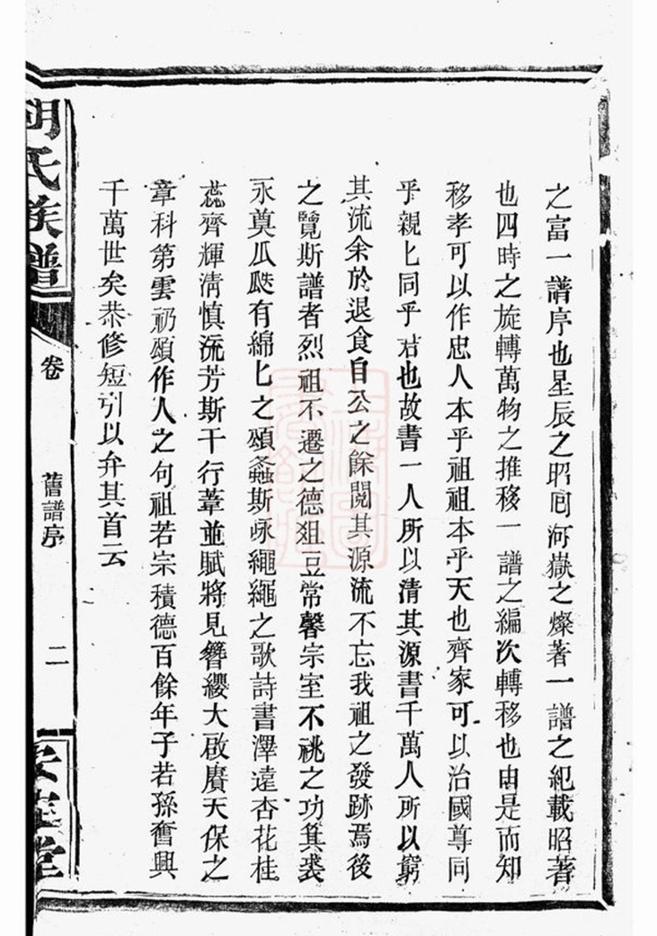 之富一譜序也星辰之昭回河嶽之燦著一譜之紀載昭著
也四時之旋轉萬物之推移一譜之編次轉移也由是而知
移孝可以作忠人本乎祖祖本乎天也齊家可以治國尊同
乎親匕同乎君也故書一人所以清其源書千萬人所以窮
其流余於退食自公之餘閱其源流不忘我祖之發跡焉後
之覽斯譜者烈祖不遷之德俎豆常馨宗室不祧之功箕裘
永奠瓜瓞有綿匕之頌螽斯咏繩繩之歌詩書澤遠杏花桂
蕊齊輝淸慎流芳斯干行葦並賦將見簪纓大啟賡天保之
章科第雲礽頌作人之句祖若宗積德百餘年子若孫奮興
千萬世矣恭修短引以弁其首云
胡氏族譜
卷
舊譜序
二
安定堂